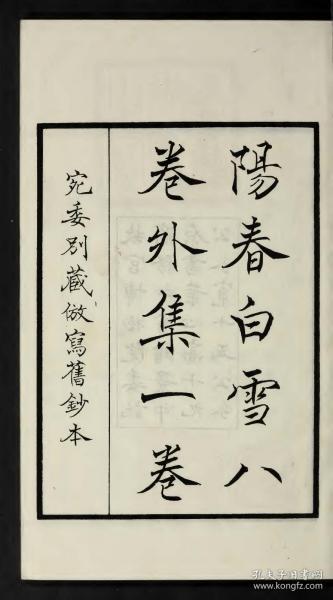 陽春白雪八
卷外集一卷
宛委別藏倣寫舊鈔本
孔夫子旧书网
www.kongfz.com